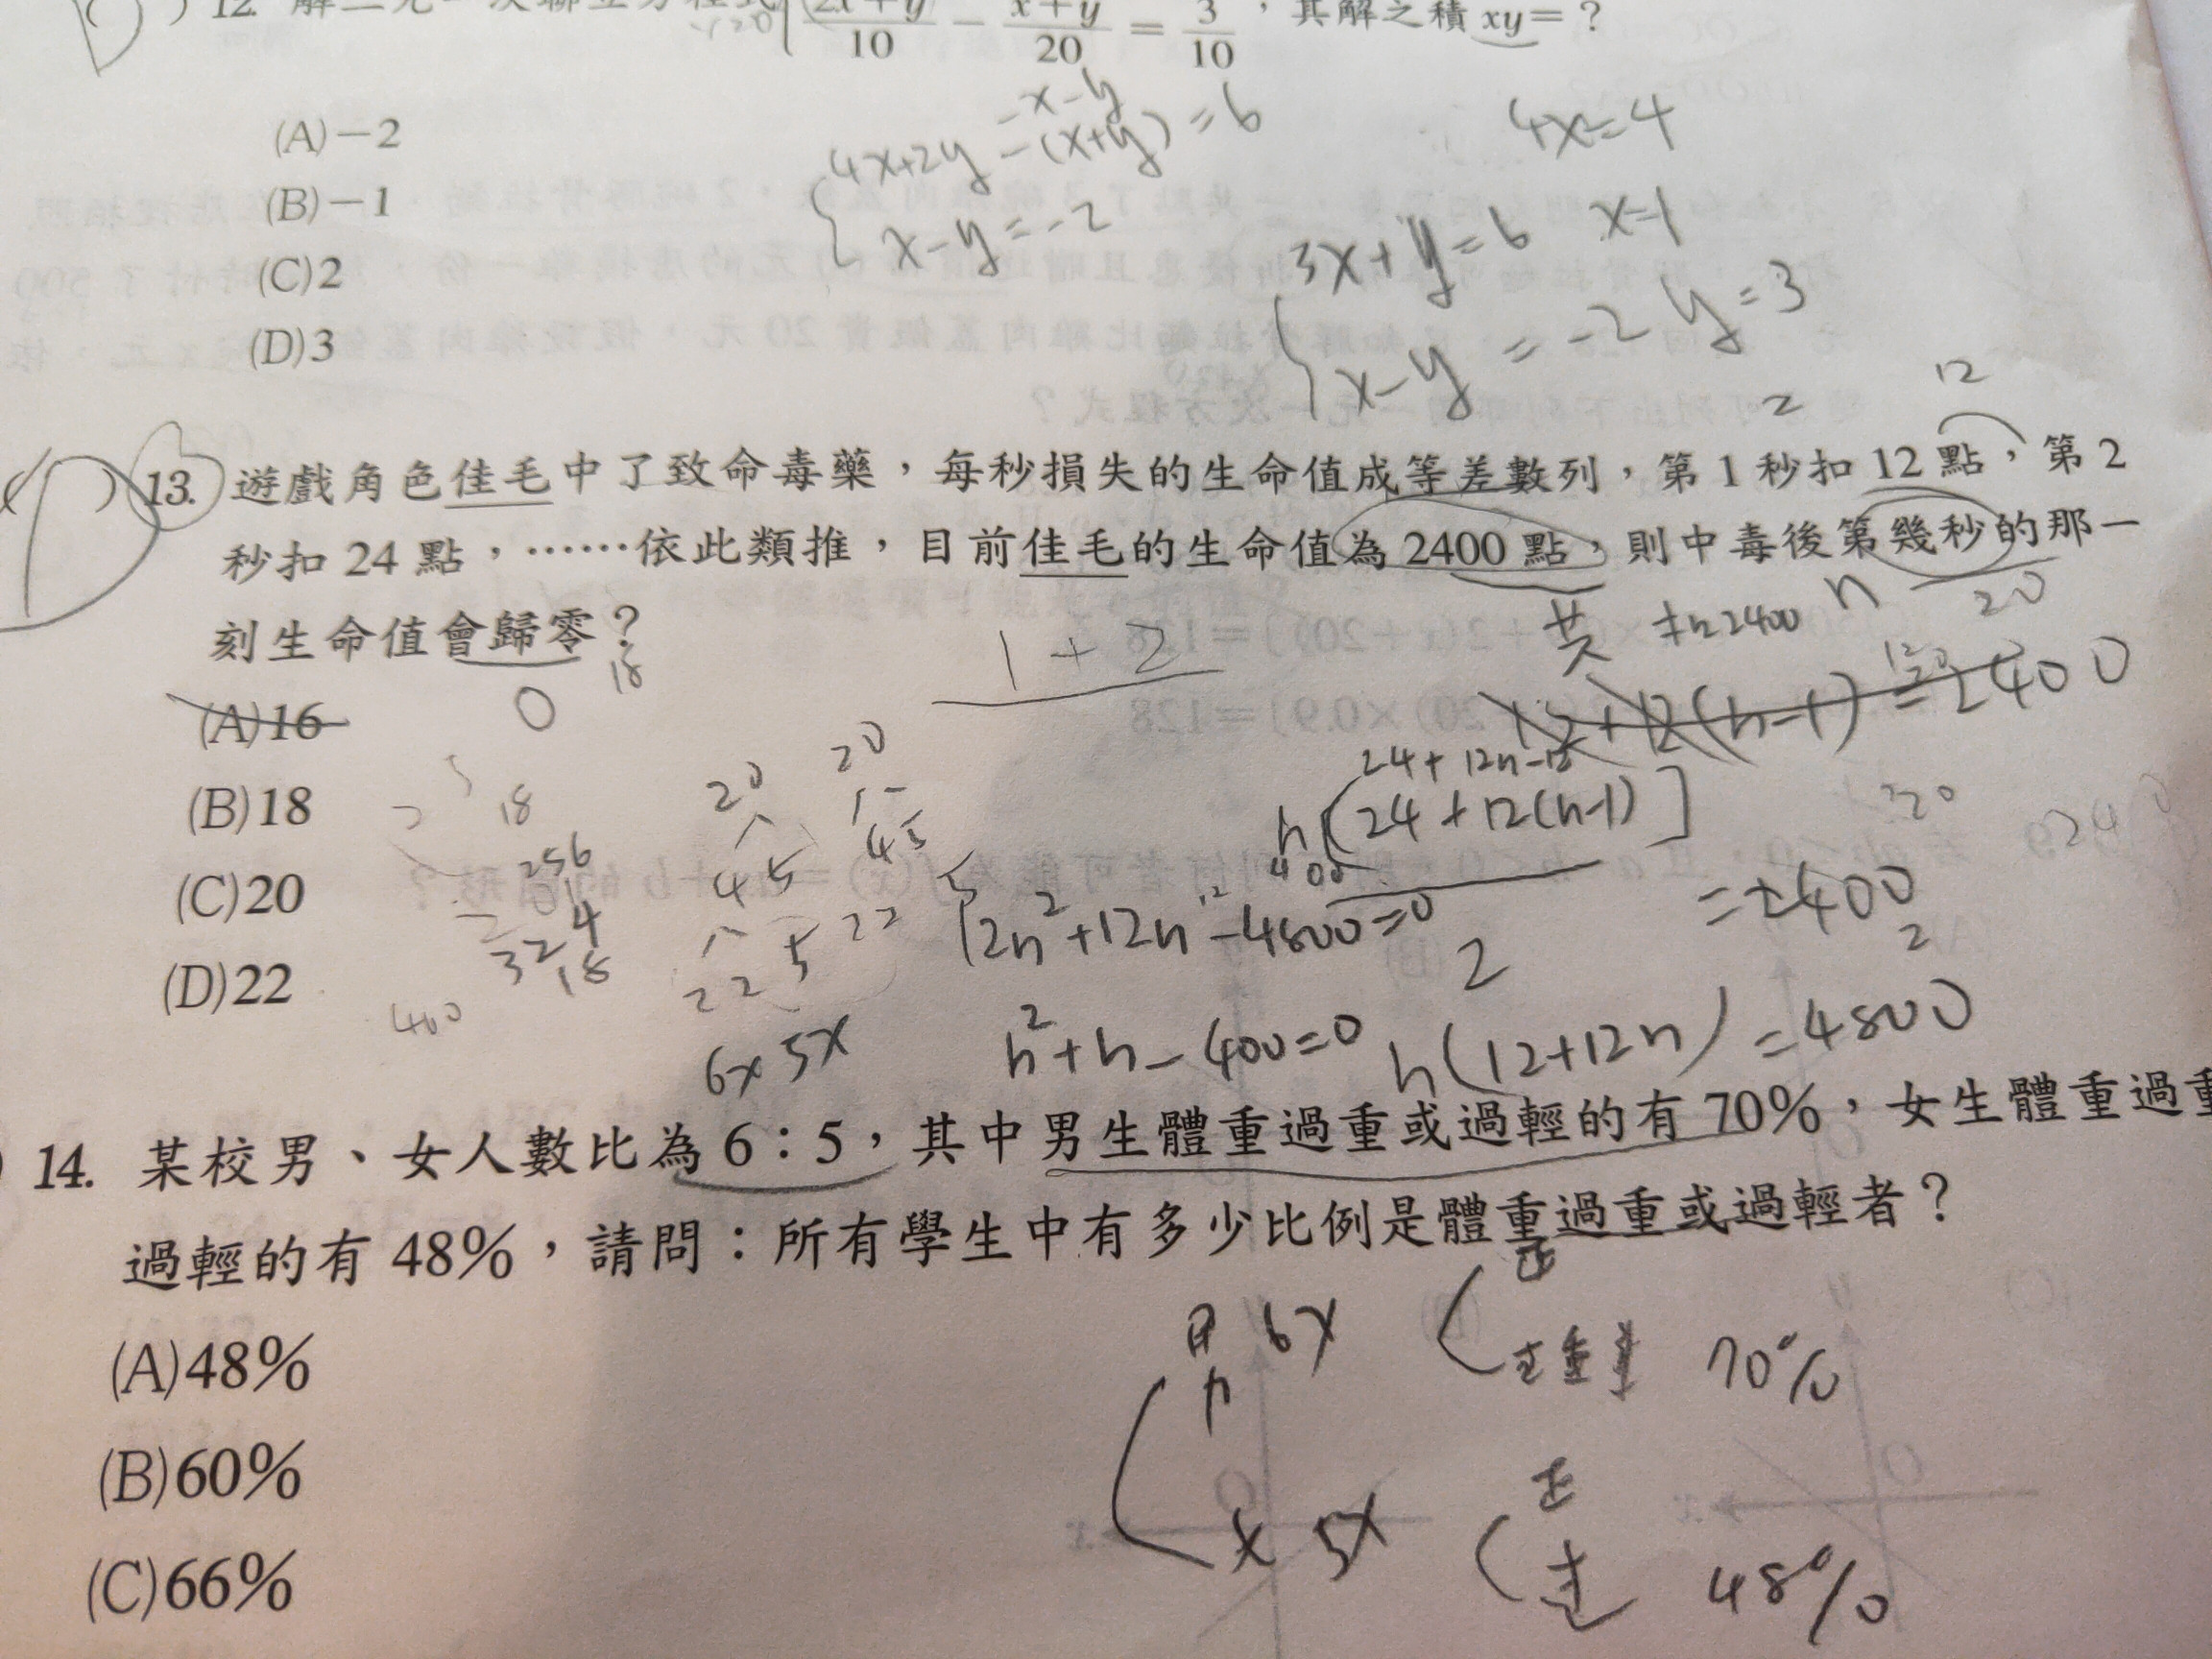 12. 解二元一次聯立方程式 2x+y/10 − x+y/20 = 3/10，其解之積 xy=？
(A)−2
(B)−1
(C)2
(D)3
−x−y
4x+2y−(x+y)=6
x−y=−2
4x=4
3x+y=6 x=1
x−y=−2 y=3
2
12
13. 遊戲角色佳毛中了致命毒藥，每秒損失的生命值成等差數列，第 1 秒扣 12 點，第 2
秒扣 24 點，……依此類推，目前佳毛的生命值為 2400 點，則中毒後第幾秒的那一
刻生命值會歸零？
(A)16
(B)18
(C)20
(D)22
0
18
1+2
n
20
12+12(n−1)=2400
24+12n−12
n[24+12(n−1)]
2
=2400
2
20
45
20
4 5
22 5
22 5
18
256
324
18
400
400
12n²+12n−4800=0
n²+n−400=0
n(12+12n)=4800
6x 5x
14. 某校男、女人數比為 6：5，其中男生體重過重或過輕的有 70%，女生體重過重
過輕的有 48%，請問：所有學生中有多少比例是體重過重或過輕者？
(A)48%
(B)60%
(C)66%
6x
正
70%
5x
正
48%